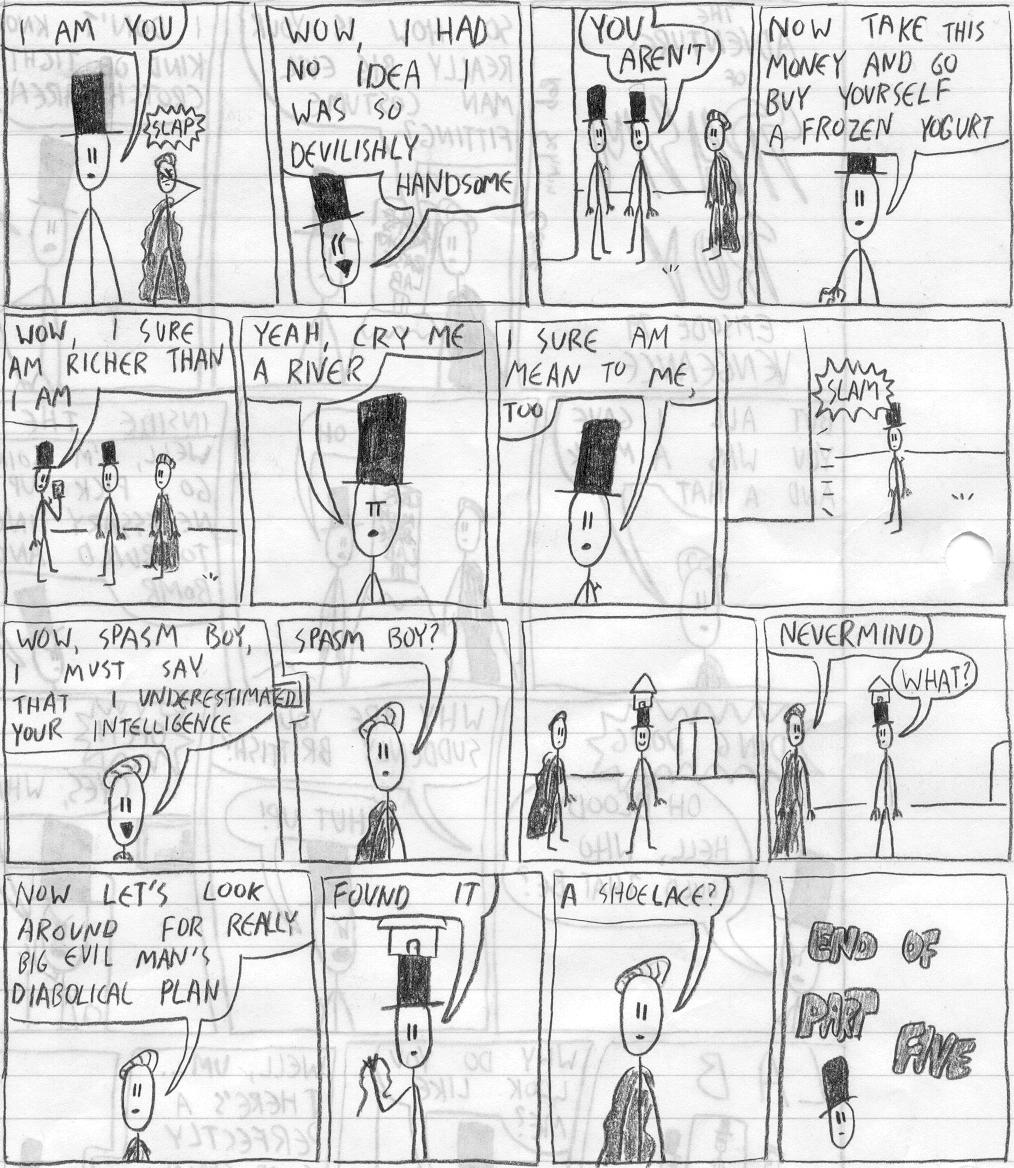 I AM YOU
SLAP
WOW, I HAD
NO IDEA I
WAS SO
DEVILISHLY
HANDSOME
YOU
AREN'T
NOW TAKE THIS
MONEY AND GO
BUY YOURSELF
A FROZEN YOGURT
WOW, I SURE
AM RICHER THAN
I AM
YEAH, CRY ME
A RIVER
I SURE AM
MEAN TO ME,
TOO
SLAM
WOW, SPASM BOY,
I MUST SAY
THAT I UNDERESTIMATED
YOUR INTELLIGENCE
SPASM BOY?
NEVERMIND
WHAT?
NOW LET'S LOOK
AROUND FOR REALLY
BIG EVIL MAN'S
DIABOLICAL PLAN
FOUND IT
A SHOELACE?
END OF
PART
FIVE